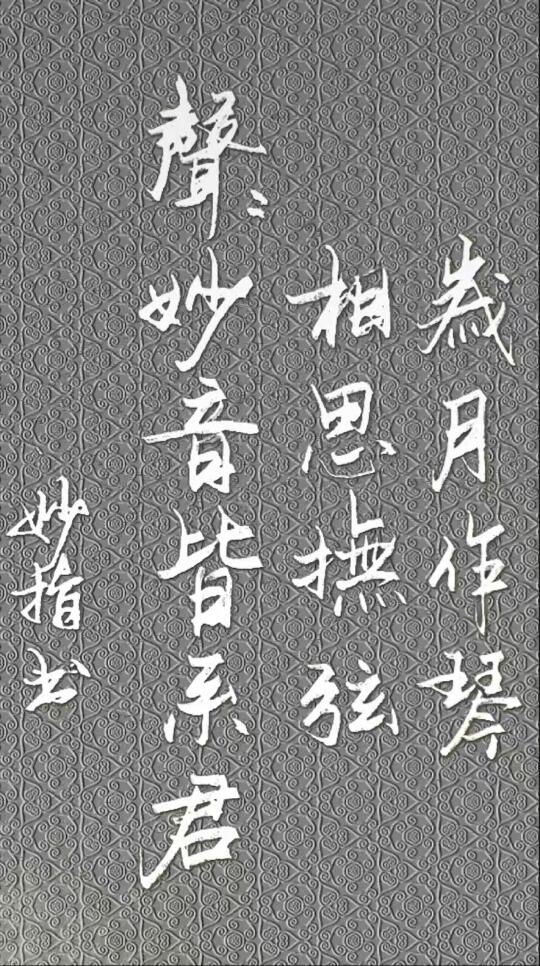 歲月作琴
相思撫弦
聲:妙音皆系君
妙指书